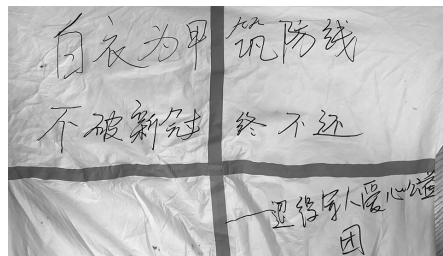 白衣为甲 筑防线
不破新冠 终不还
——迎缘家人爱心公益
团